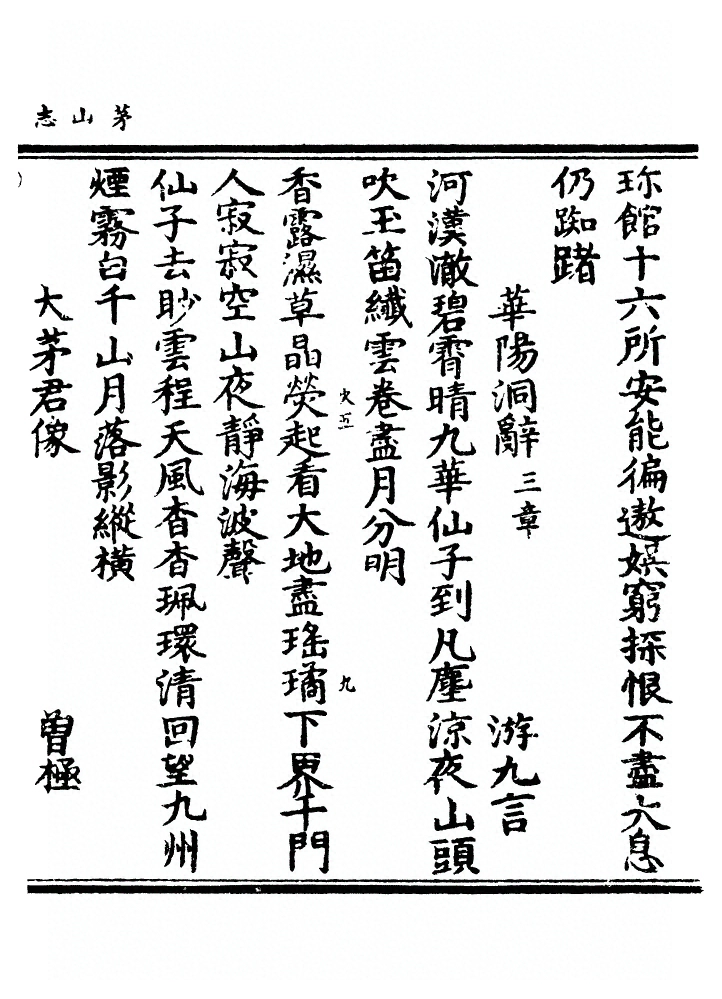 茅山志
珎館十六所安能徧遨娯窮探恨不盡太息
仍踟躇
華陽洞辭 三章 游九言
河漢澈碧霄晴九華仙子到凡塵涼夜山頭
吹玉笛纖雲卷盡月分明
香露濕草晶熒起看大地盡瑤璚下界千門
人寂寂空山夜靜海波聲
仙子去眇雲程天風杳杳珮環清回望九州
煙霧白千山月落影縱橫
大茅君像 曾極